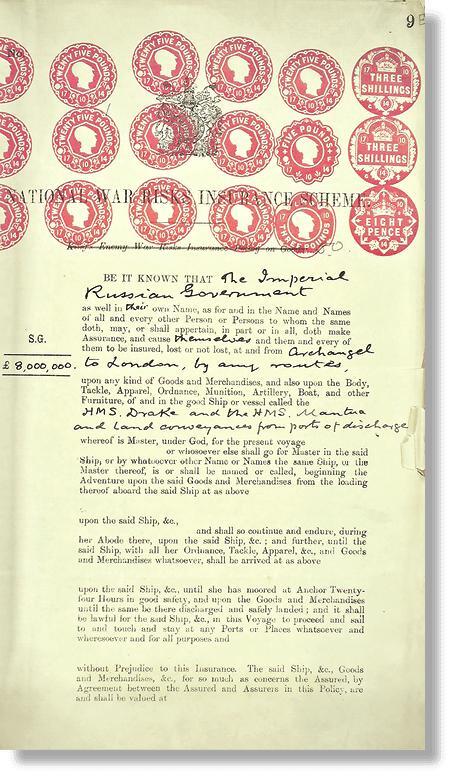 9
TWENTY FIVE POUNDS
TWENTY FIVE POUNDS
TWENTY FIVE POUNDS
TWENTY FIVE POUNDS
THREE
SHILLINGS
TWENTY FIVE POUNDS
TWENTY FIVE POUNDS
FIVE POUNDS
THREE
SHILLINGS
NATIONAL WAR RISKS INSURANCE SCHEME.
EIGHT
PENCE
Enemy War Risks Insurance Policy on Goods.
BE IT KNOWN THAT The Imperial
Russian Government
as well in their own Name, as for and in the Name and Names
of all and every other Person or Persons to whom the same
doth, may, or shall appertain, in part or in all, doth make
S.G.
Assurance, and cause themselves and them and every of
them to be insured, lost or not lost, at and from Archangel
£8,000,000. to London, by any routes,
upon any kind of Goods and Merchandises, and also upon the Body,
Tackle, Apparel, Ordnance, Munition, Artillery, Boat, and other
Furniture, of and in the good Ship or vessel called the
HMS. Drake and the HMS. Mantua
and land conveyances from ports of discharge
whereof is Master, under God, for the present voyage
or whosoever else shall go for Master in the said
Ship, or by whatsoever other Name or Names the same Ship, or the
Master thereof, is or shall be named or called, beginning the
Adventure upon the said Goods and Merchandises from the loading
thereof aboard the said Ship at as above
upon the said Ship, &c.,
and shall so continue and endure, during
her Abode there, upon the said Ship, &c. ; and further, until the
said Ship, with all her Ordnance, Tackle, Apparel, &c., and Goods
and Merchandises whatsoever, shall be arrived at as above
upon the said Ship, &c., until she has moored at Anchor Twenty-
four Hours in good safety, and upon the Goods and Merchandises
until the same be there discharged and safely landed ; and it shall
be lawful for the said Ship, &c., in this Voyage to proceed and sail
to and touch and stay at any Ports or Places whatsoever and
wheresoever and for all purposes and
without Prejudice to this Insurance. The said Ship, &c., Goods
and Merchandises, &c., for so much as concerns the Assured, by
Agreement between the Assured and Assurers in this Policy, are
and shall be valued at